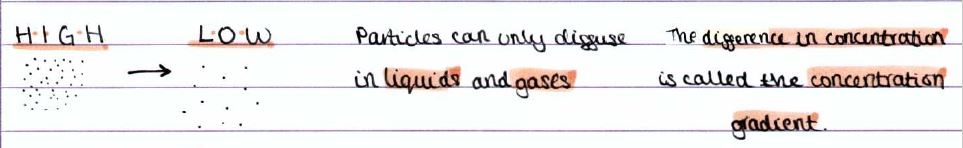 HIGH
LOW
Particles can only diffuse
in liquids and gases
The difference in concentration
is called the concentration
gradient.